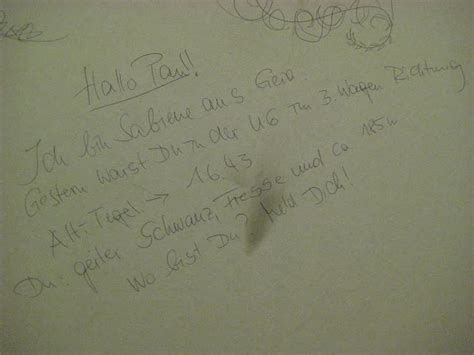 Hallo Paul!
Ich bin Sabiene aus Gera.
Gestern warst Du in der U6 im 3. Wagen Richtung
Alt-Tegel → 16.43
Du: geiler Schwanz, Fresse und ca. 185m
Wo bist Du? Meld Dich!